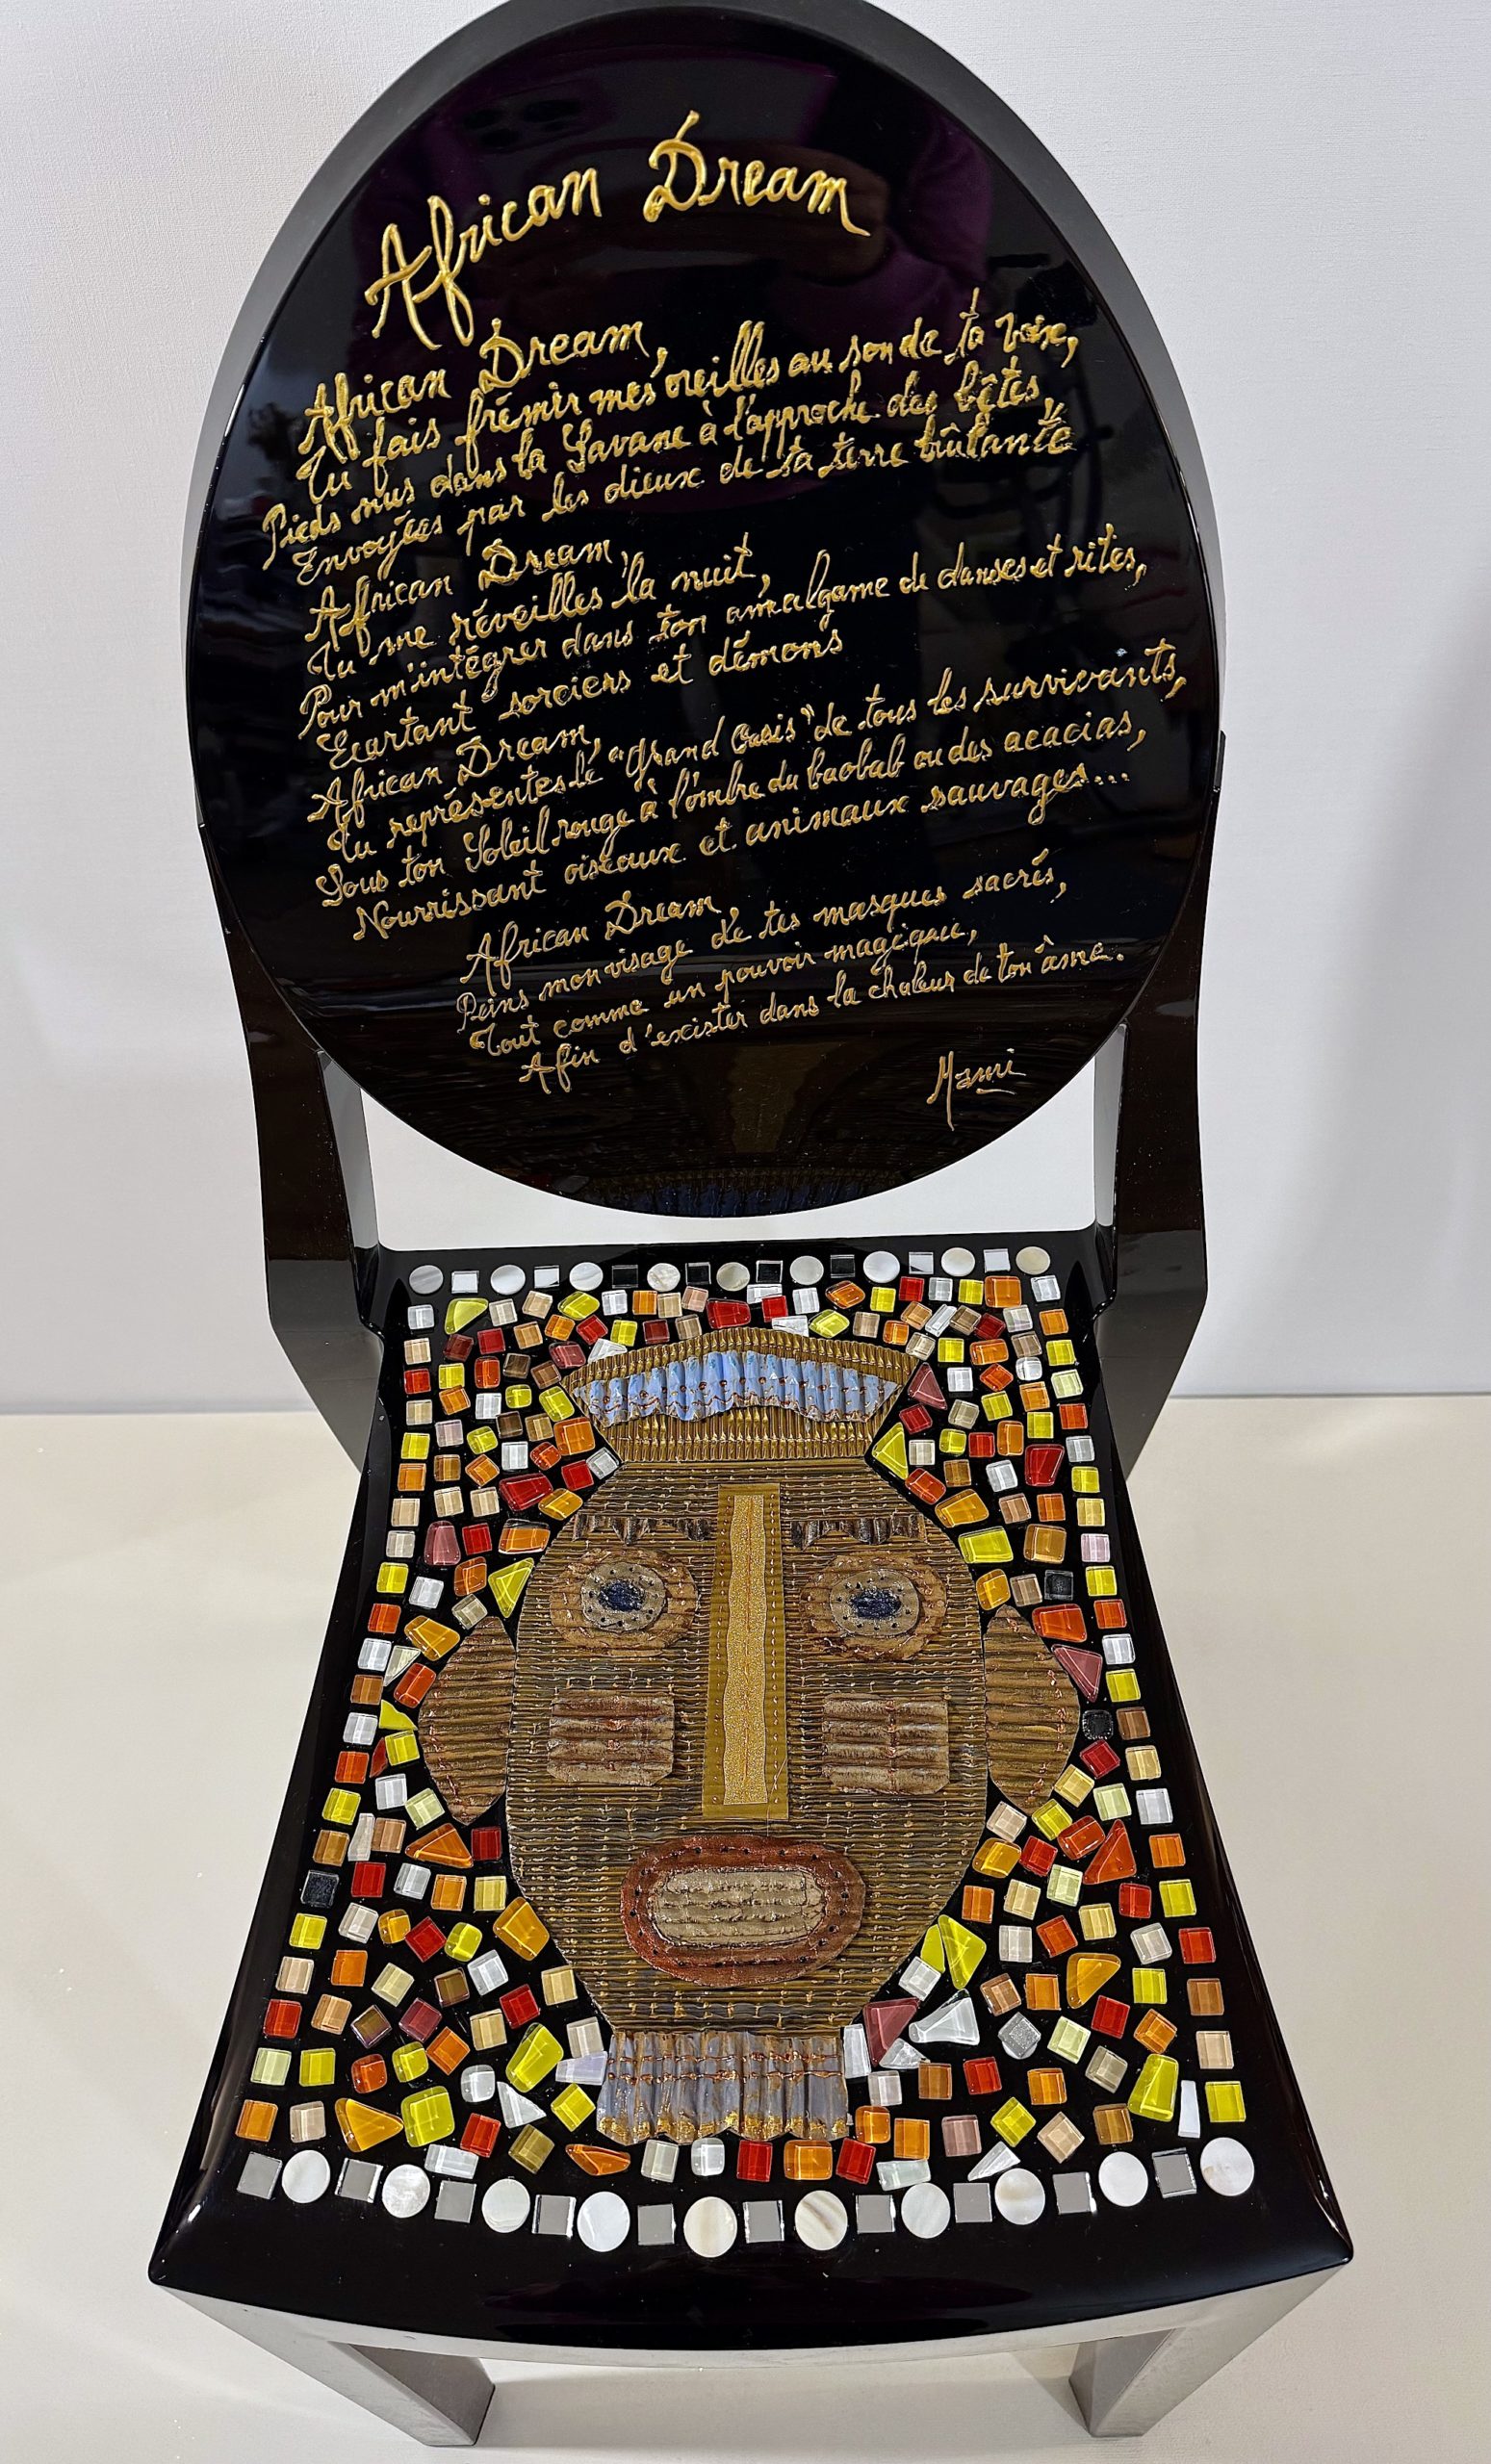 African Dream
African Dream,
Tu fais frémir mes oreilles au son de ta voix,
Pieds nus dans la Savane à l'approche des bêtes,
Envoyées par les dieux de ta terre brûlante
African Dream,
Tu me réveilles la nuit,
Pour m'intégrer dans ton amalgame de danses et rites,
Ecartant sorciers et démons
African Dream,
Tu représentes le "grand Oasis" de tous les survivants,
Sous ton Soleil rouge à l'ombre du baobab ou des acacias,
Nourrissant oiseaux et animaux sauvages...
African Dream,
Peins mon visage de tes masques sacrés,
Tout comme un pouvoir magique,
Afin d'exister dans la chaleur de ton âme.